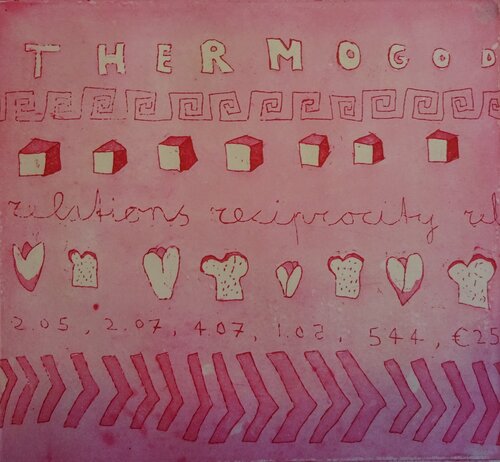 THERMOGOD
relations reciprocity rel
2.05, 2.07, 4.07, 1.02, 544, €25